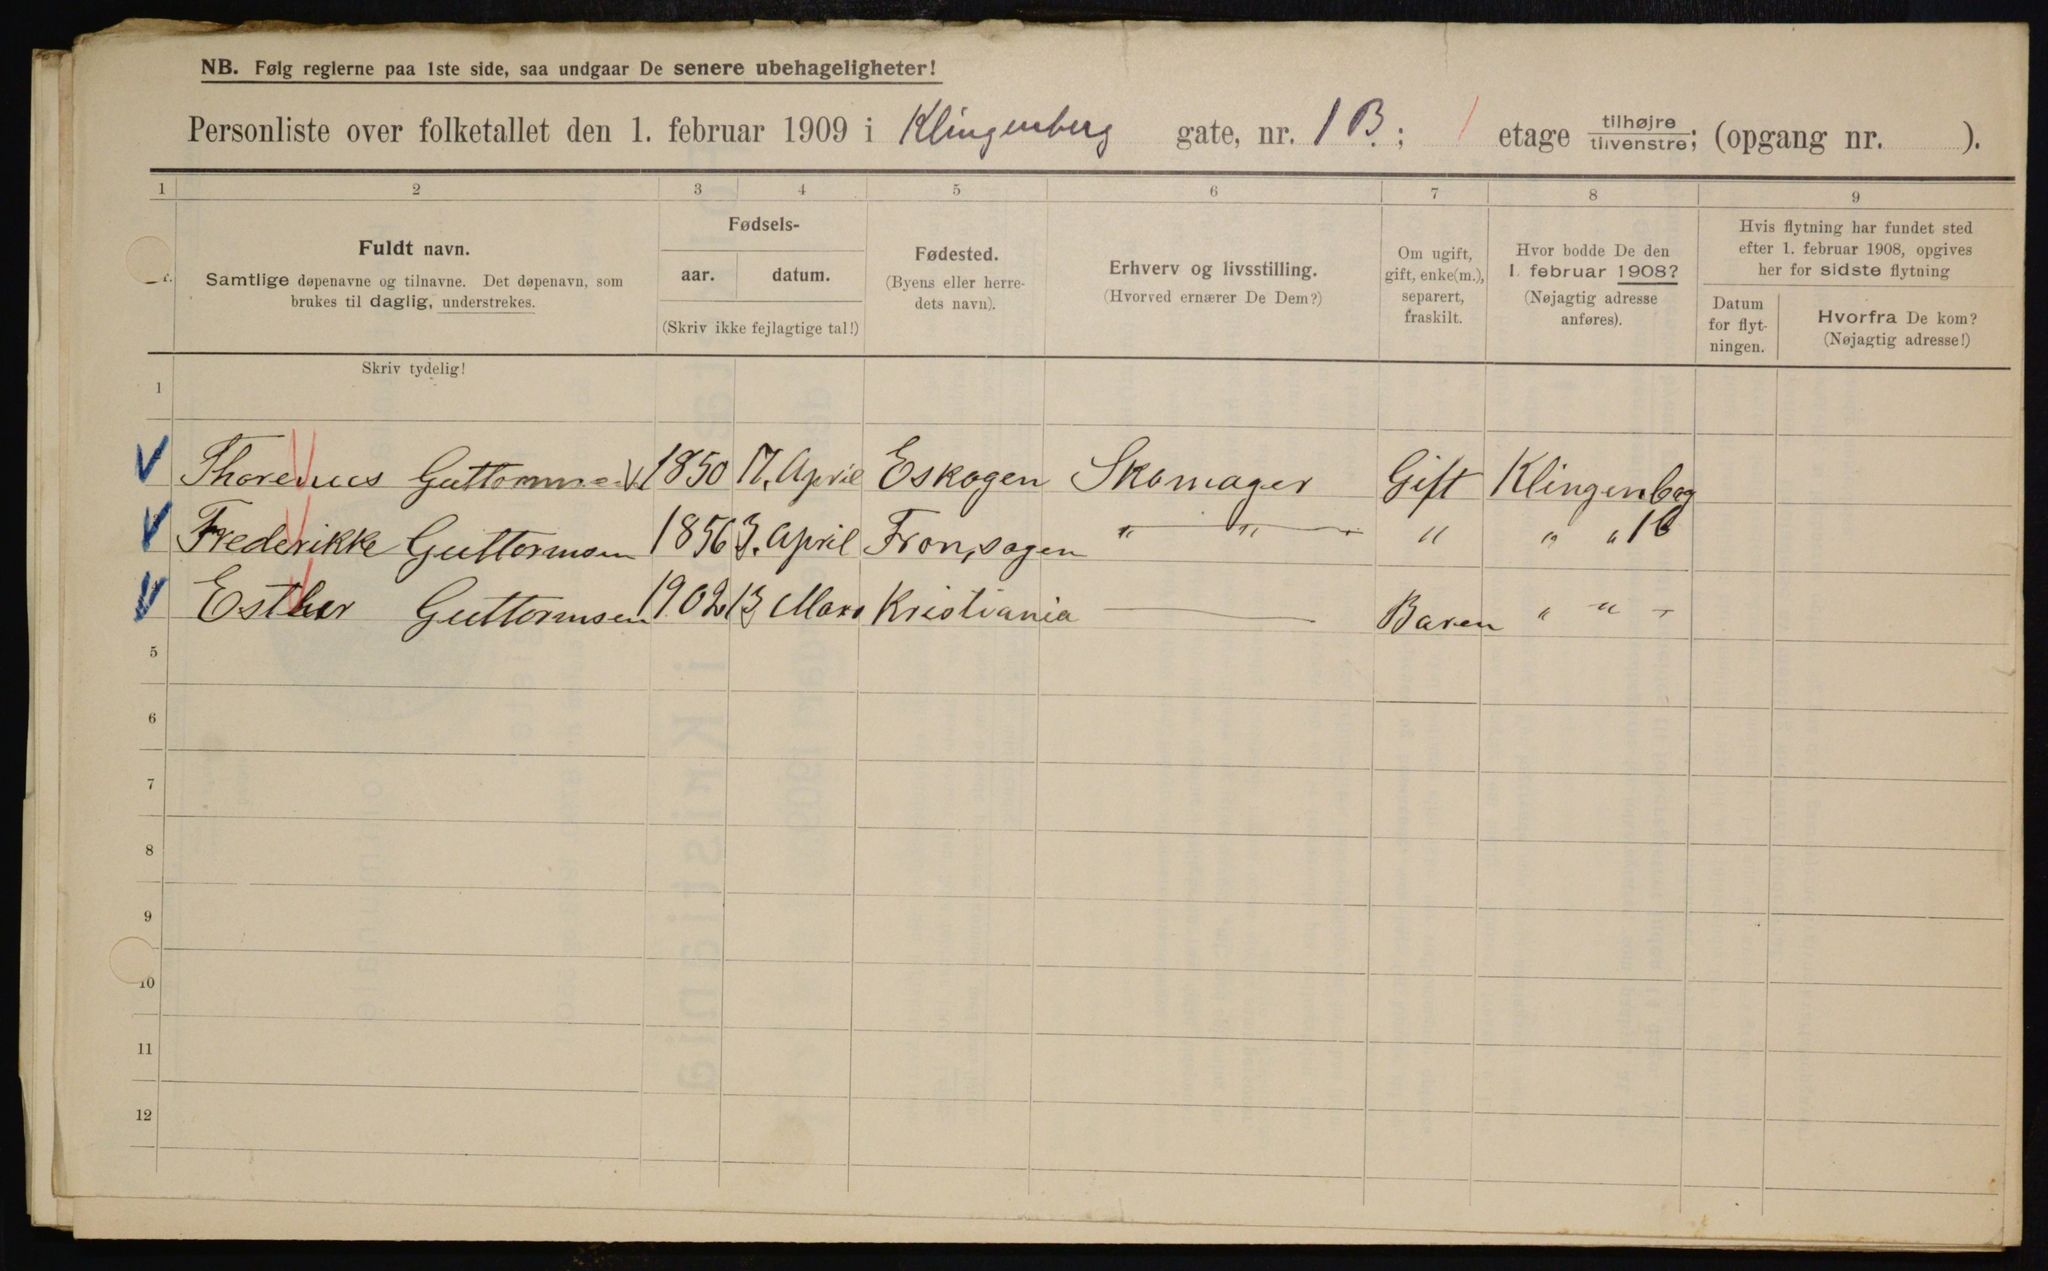 NB. Følg reglerne paa 1ste side, saa undgaar De senere ubehageligheter!
Personliste over folketallet den 1. februar 1909 i Klingenberg gate, nr. 1 B.; 1 etage tilhøjre tilvenstre; (opgang nr. ).
1 2 3 4 5 6 7 8 9
Fuldt navn.
Samtlige døpenavne og tilnavne. Det døpenavn, som
brukes til daglig, understrekes.
Skriv tydelig!
Fødsels-
aar. datum.
(Skriv ikke fejlagtige tal!)
Fødested.
(Byens eller herre-
dets navn).
Erhverv og livsstilling.
(Hvorved ernærer De Dem?)
Om ugift,
gift, enke(m.),
separert,
fraskilt.
Hvor bodde De den
1. februar 1908?
(Nøjagtig adresse
anføres).
Hvis flytning har fundet sted
efter 1. februar 1908, opgives
her for sidste flytning
Datum
for flyt-
ningen.
Hvorfra De kom?
(Nøjagtig adresse!)
1
1850 17. April Eskogen Skomager Gift Klingenbeg
Frederikke Guttormsen 1856 3. April " " " " "
Esther Guttormsen 1902 13 Mars Kristiania Baren " "
5
6
7
8
9
10
11
12